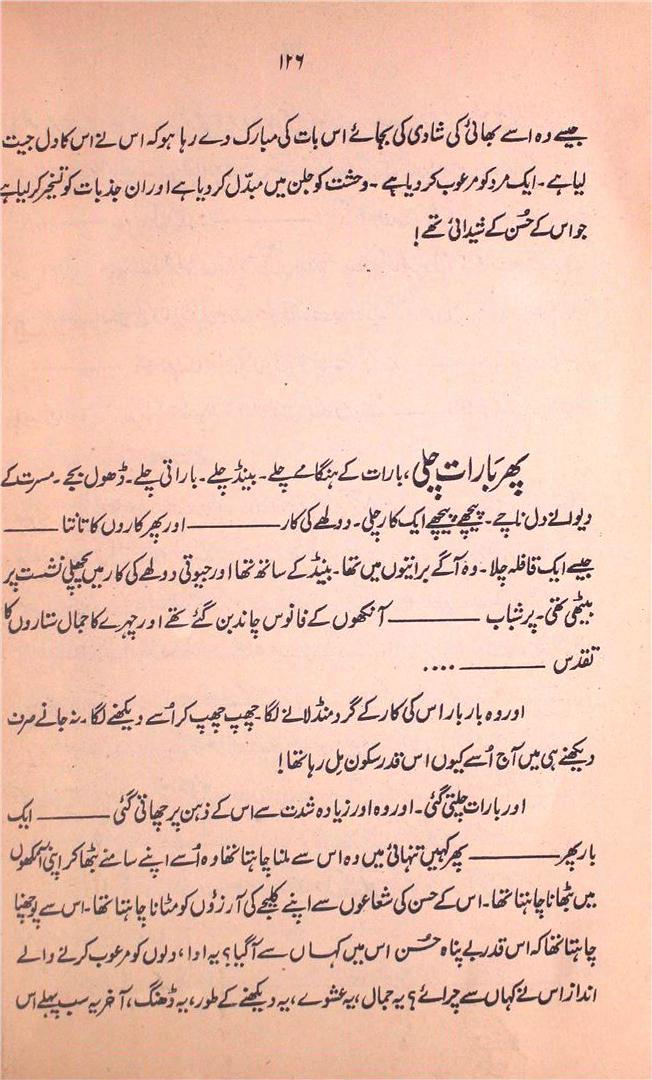 ۱۲۶
جیسے وہ اسے بھائی کی شادی کی بجائے اس بات کی مبارک دے رہا ہو کہ اس نے اس کا دل جیت
لیا ہے۔ ایک مرد کو مرعوب کر دیا ہے۔ وحشت کو جلن میں مبدّل کر دیا ہے اور ان جذبات کو تسخیر کر لیا ہے
جو اس کے حُسن کے شیدائی تھے!
پھر بارات چلی، بارات کے ہنگامے چلے۔ بینڈ چلے۔ باراتی چلے۔ ڈھول بجے۔ مسرت کے
دیوانے دل ناچے۔ پیچھے پیچھے ایک کار چلی۔ دولھے کی کار ———— اور پھر کاروں کا تانتا ———
جیسے ایک قافلہ چلا۔ وہ آگے براتیوں میں تھا۔ بینڈ کے ساتھ تھا اور جیوتی دولھے کی کار میں پچھلی نشست پر
بیٹھی تھی۔ پر شباب ———— آنکھوں کے فانوس چاند بن گئے تھے اور چہرے کا جمال ستاروں کا
تقدس ———— ....
اور وہ بار بار اس کی کار کے گرد منڈلانے لگا۔ چھپ چھپ کر اُسے دیکھنے لگا۔ نہ جانے صرف
دیکھنے ہی میں آج اُسے کیوں اس قدر سکون مل رہا تھا!
اور بارات چلتی گئی۔ اور وہ اور زیادہ شدت سے اس کے ذہن پر چھاتی گئی ———— ایک
بار پھر ———— پھر کہیں تنہائی میں وہ اس سے ملنا چاہتا تھا وہ اُسے اپنے سامنے بٹھا کر اپنی آنکھوں
میں بٹھانا چاہتا تھا۔ اس کے حسن کی شعاعوں سے اپنے کلیجے کی آرزوں کو مٹانا چاہتا تھا۔ اس سے پوچھنا
چاہتا تھا کہ اس قدر بے پناہ حُسن اس میں کہاں سے آ گیا؟ یہ ادا، دلوں کو مرعوب کرنے والے
انداز اس نے کہاں سے چرائے؟ یہ جمال، یہ عشوے، یہ دیکھنے کے طور، یہ ڈھنگ، آخر یہ سب پہلے اس